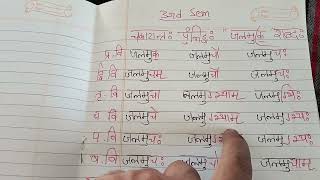 3rd Sem
चकारान्तः पुंलिङ्गः "जलमुक्" शब्दः
प्र. वि जलमुक् जलमुचौ जलमुचः
द्वि. वि जलमुचम् जलमुचौ जलमुचः
तृ. वि जलमुचा जलमुग्भ्याम् जलमुग्भिः
च. वि जलमुचे जलमुग्भ्याम् जलमुग्भ्यः
प. वि जलमुचः जलमुग्भ्याम् जलमुग्भ्यः
ष. वि जलमुचः जलमुचोः जलमुचाम्